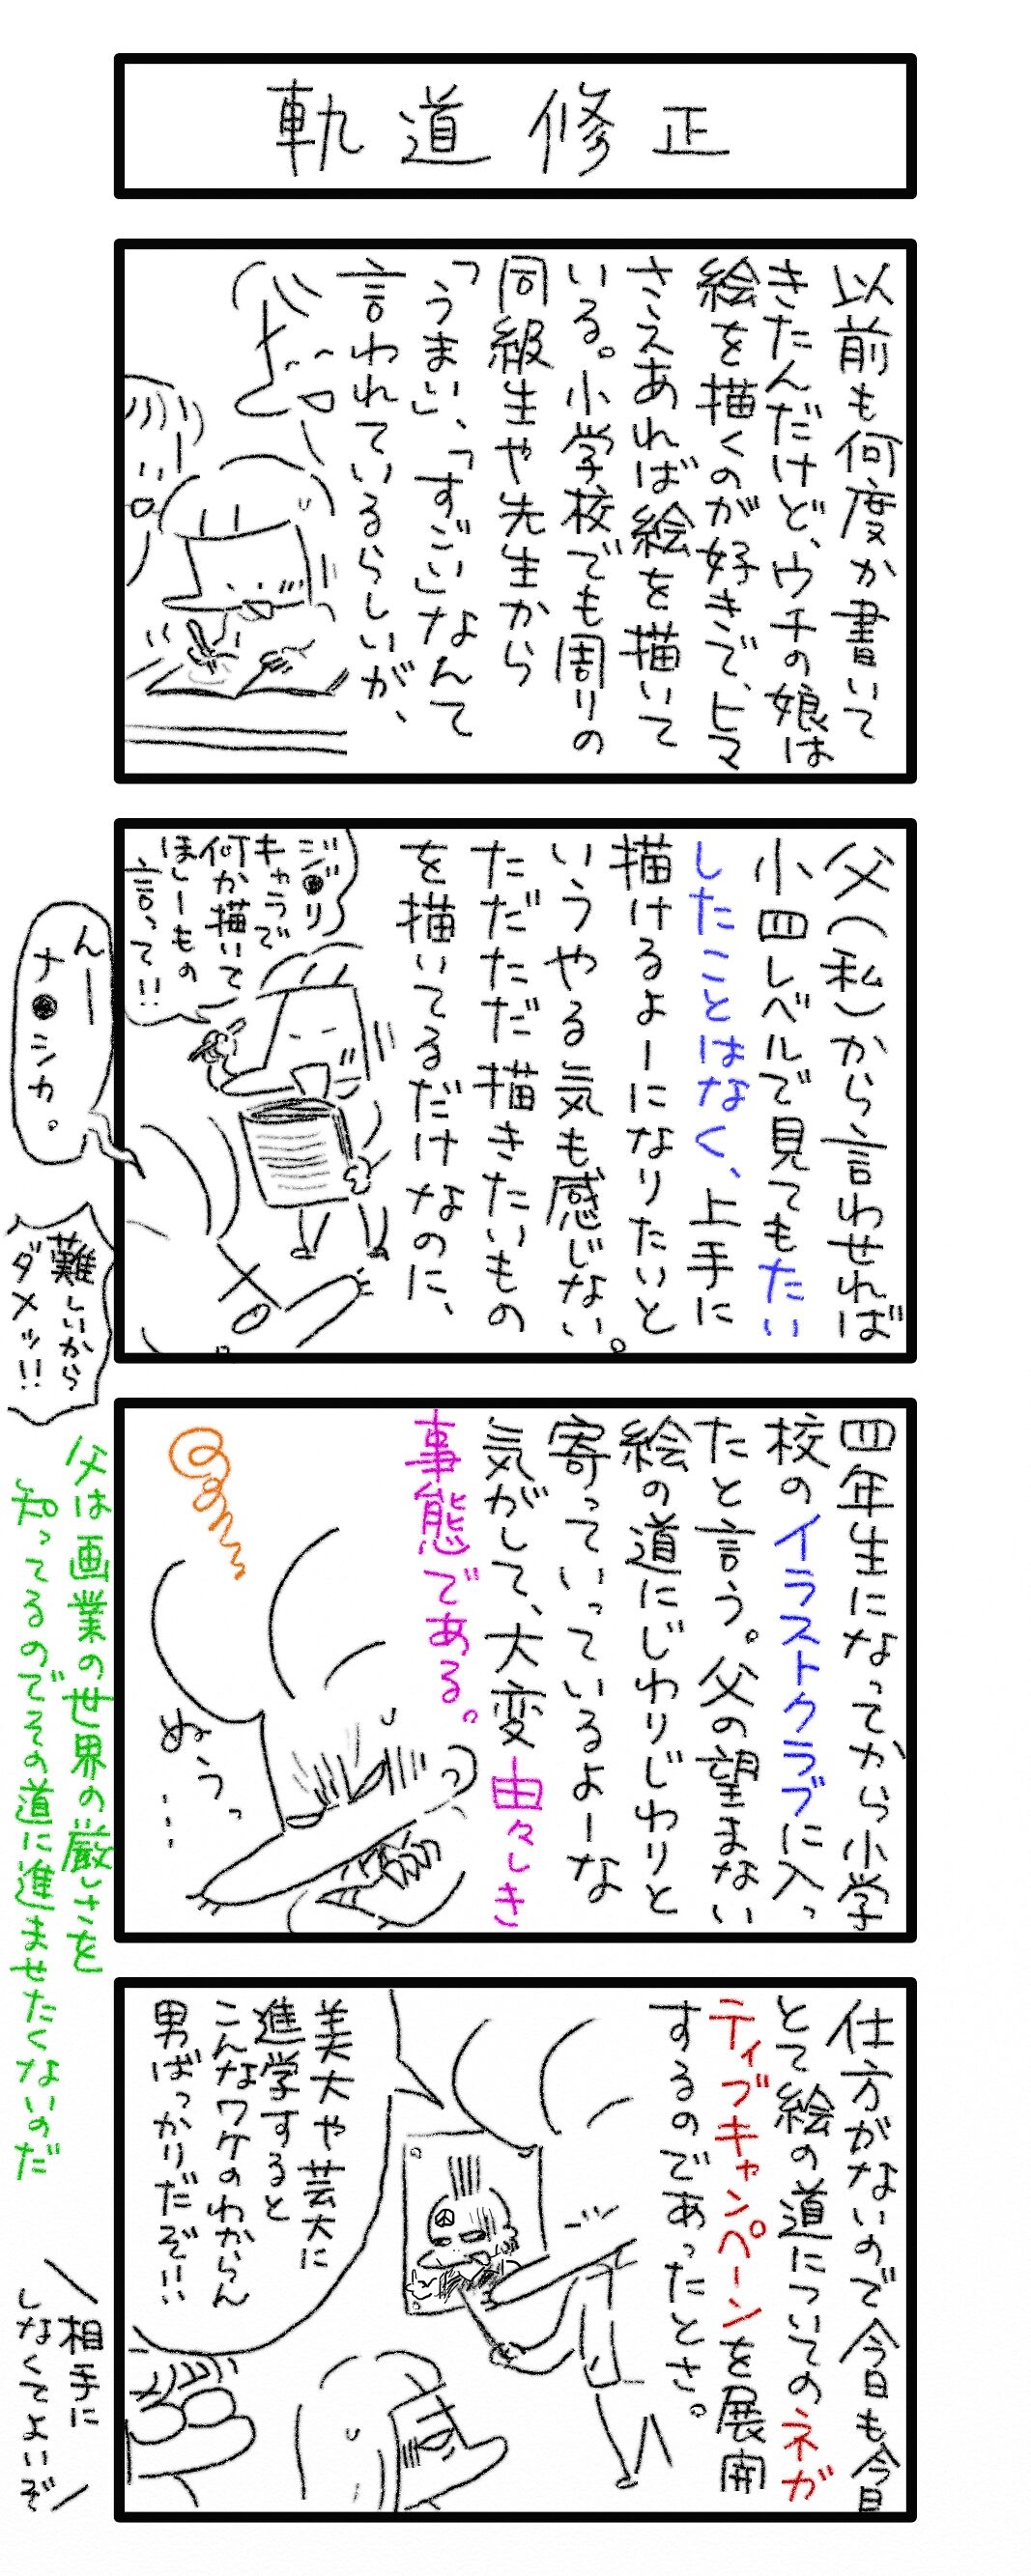 軌道修正
以前も何度か書いて
きたんだけど、ウチの娘は
絵を描くのが好きで、ヒマ
さえあれば絵を描いて
いる。小学校でも周りの
同級生や先生から
「うまい」、「すごい」なんて
言われているらしいが、
父(私)から言わせれば
小四レベルで見てもたい
したことはなく、上手に
描けるよーになりたいと
いうやる気も感じない。
ただただ描きたいもの
を描いてるだけなのに、
ジ●リ
キャラで
何か描いて
ほしーもの
言って!!
んー
ナ●シカ。
難しいから
ダメッ!!
四年生になってから小学
校のイラストクラブに入っ
たと言う。父の望まない
絵の道にじわりじわりと
寄っていっているよーな
気がして、大変由々しき
事態である。
ぬうっ…
父は画業の世界の厳しさを
知ってるのでその道に進ませたくないのだ
仕方がないので今日も今日
とて絵の道についてのネガ
ティブキャンペーンを展開
するのであったとさ。
美大や芸大に
進学すると
こんなワケのわからん
男ばっかりだぞ!!
相手に
しなくてよいぞ